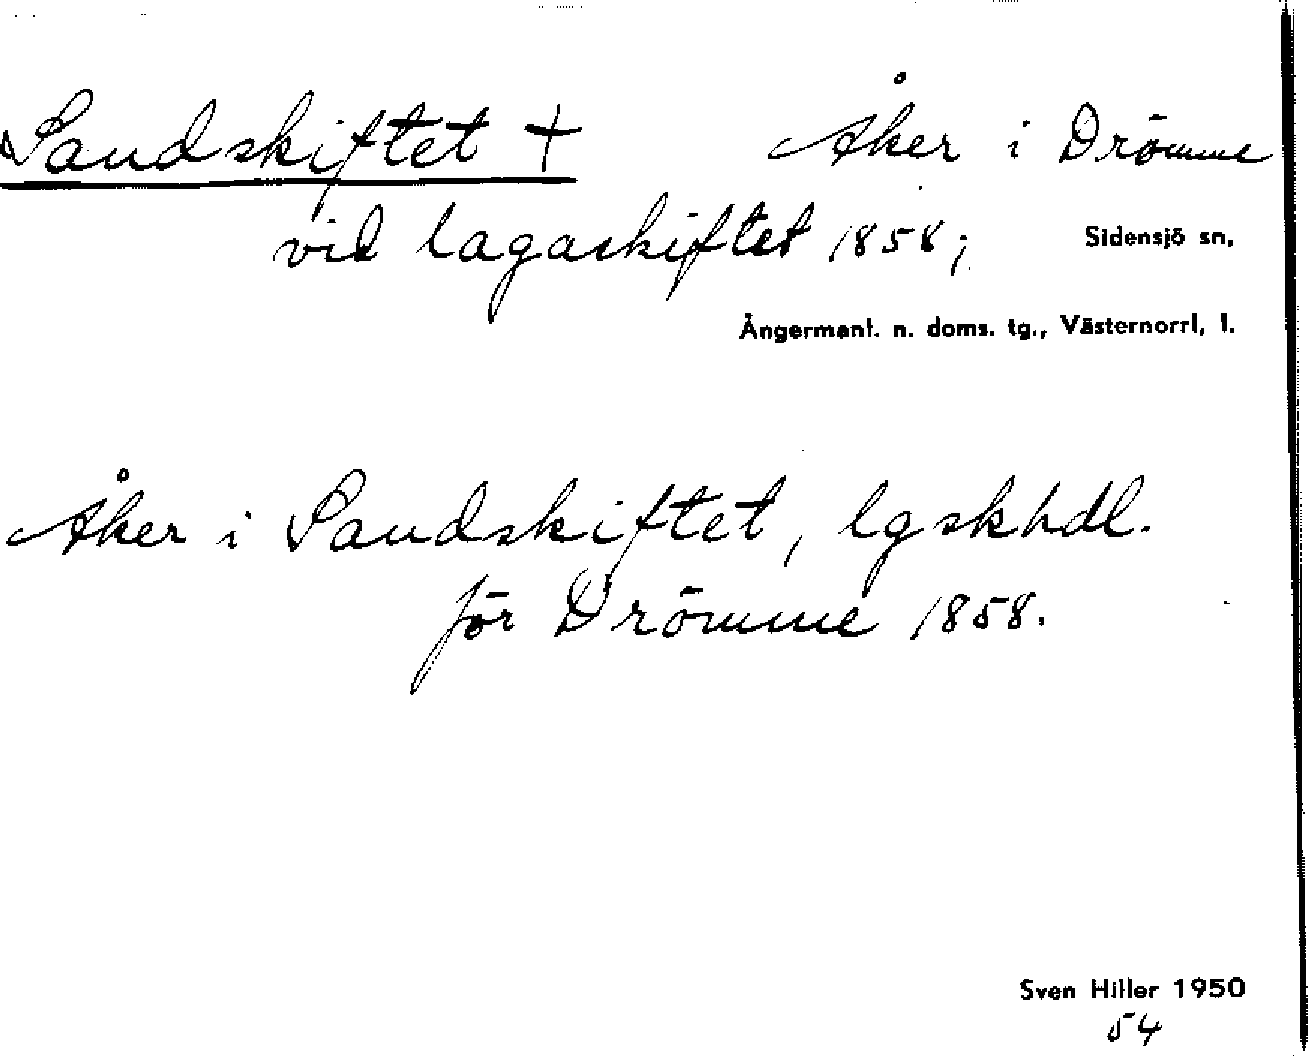 Sandskiftet † Åker i Drömme
vid lagaskiftet 1858; Sidensjö sn,
Ångermanl. n. doms. tg., Västernorrl, l.
Åker i Sandskiftet, lgskhdl.
för Drömme 1858.
Sven Hiller 1950
54